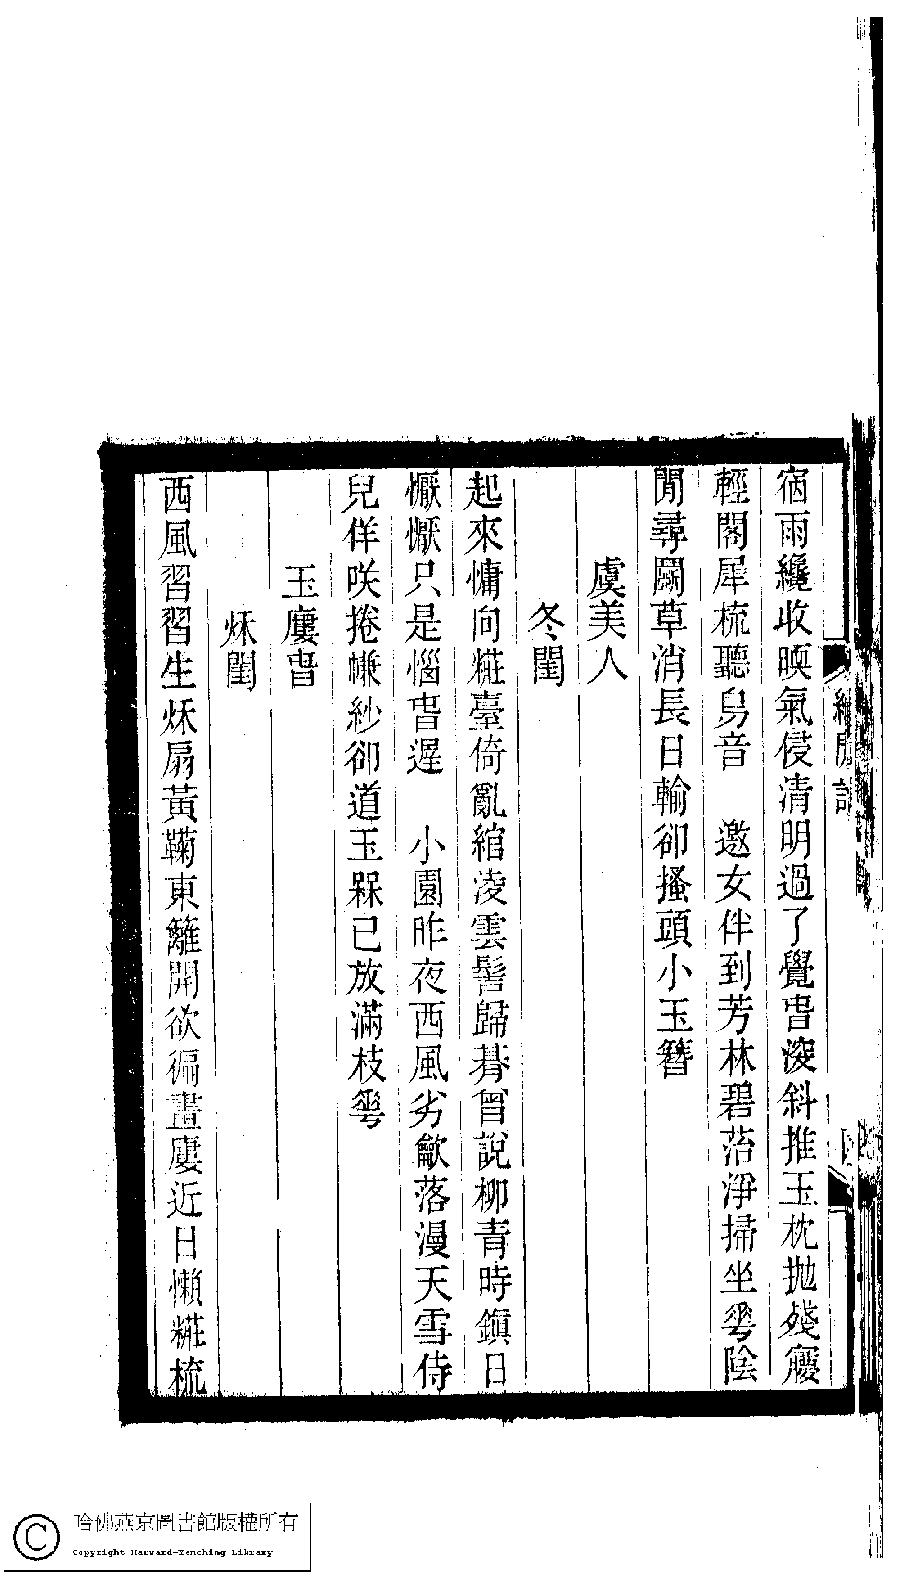 宿雨纔收暝氣侵清明過了覺旾深斜推玉枕拋殘寢
輕閣犀梳聽舄音　邀女伴到芳林碧苔淨掃坐雩陰
閒尋鬭草消長日輸卻搔頭小玉簪
虞美人
冬閨
起來慵向糚臺倚亂綰凌雲髻歸朞曾說柳青時鎮日
懨懨只是惱旾遲　小園昨夜西風劣歗落漫天雪侍
兒佯咲捲㡘紗卻道玉槑已放滿枝雩
玉廔旾
秌閨
西風習習生秌扇黃鞠東籬開欲徧畫廔近日懶糚梳
哈佛燕京圖書館版權所有
Copyright Harvard-Yenching Library